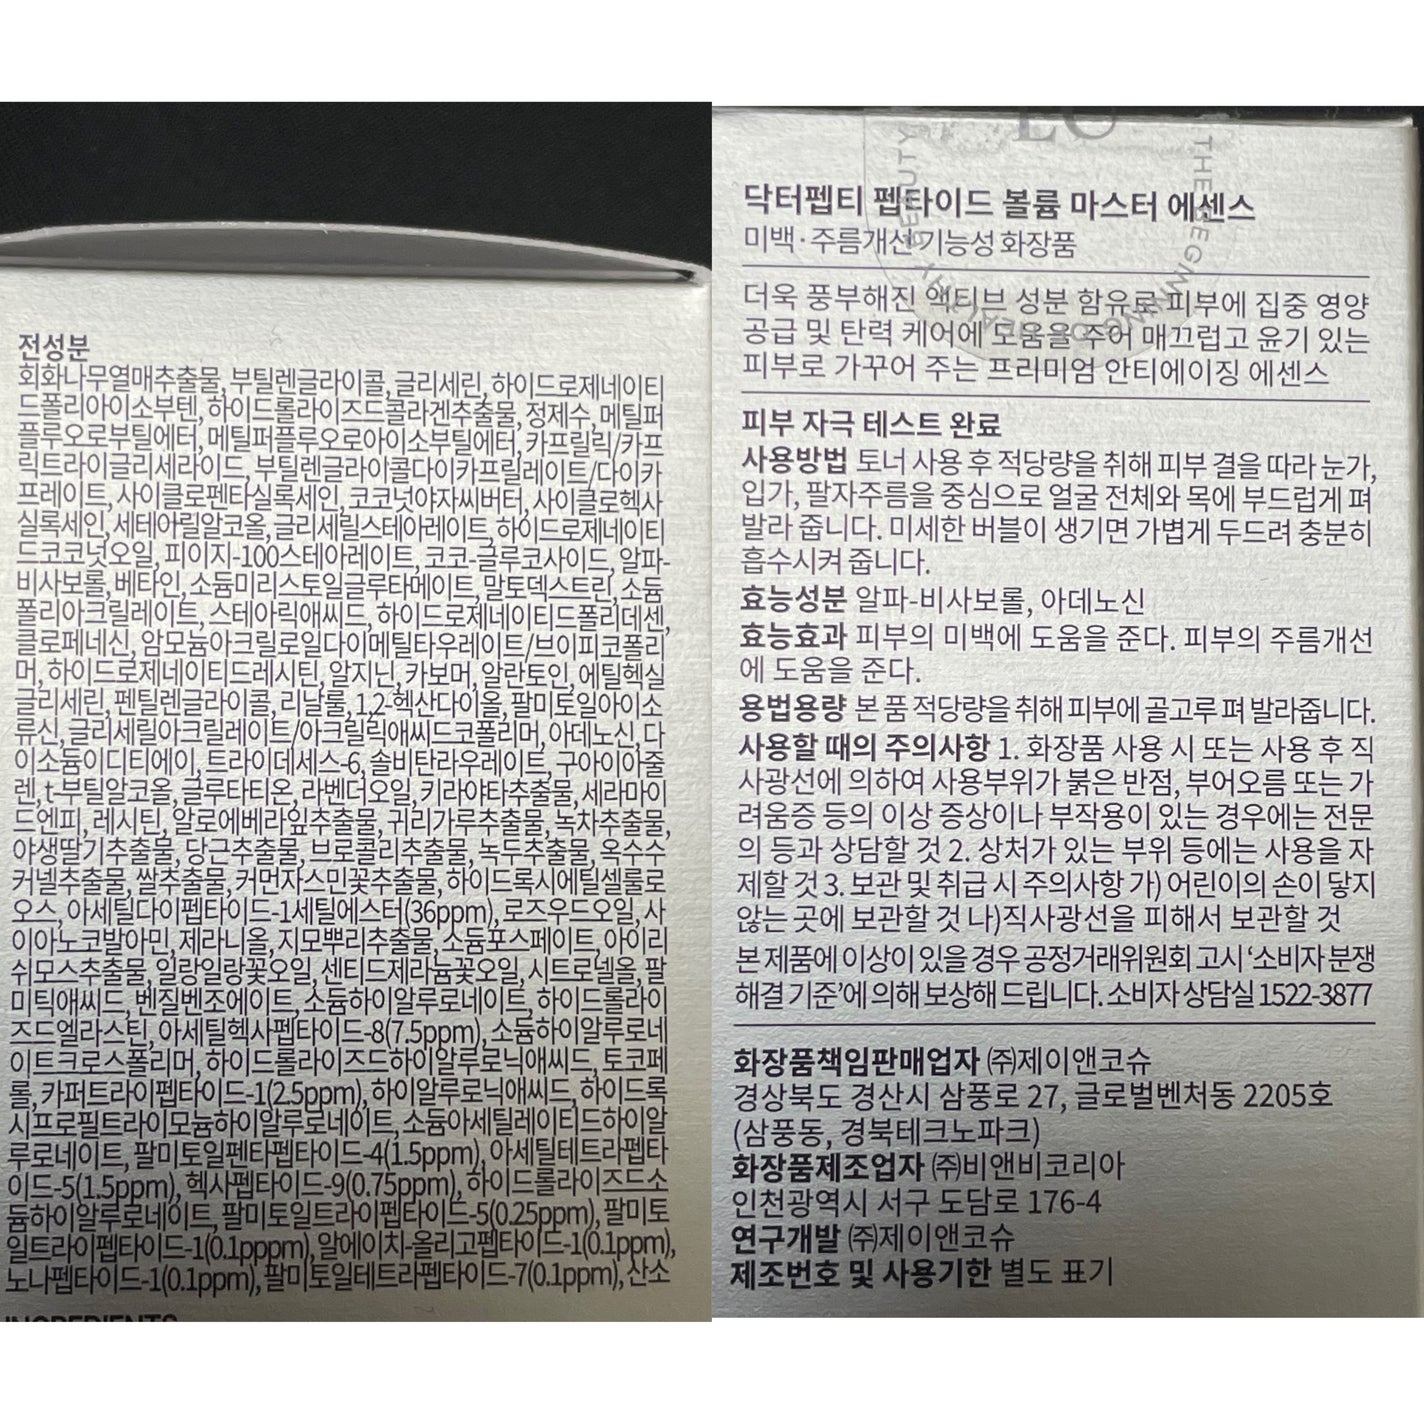 전성분
회화나무열매추출물, 부틸렌글라이콜, 글리세린, 하이드로제네이티
드폴리아이소부텐, 하이드롤라이즈드콜라겐추출물, 정제수, 메틸퍼
플루오로부틸에터, 메틸퍼플루오로아이소부틸에터, 카프릴릭/카프
릭트라이글리세라이드, 부틸렌글라이콜다이카프릴레이트/다이카
프레이트, 사이클로펜타실록세인, 코코넛야자씨버터, 사이클로헥사
실록세인, 세테아릴알코올, 글리세릴스테아레이트, 하이드로제네이티
드코코넛오일, 피이지-100스테아레이트, 코코-글루코사이드, 알파-
비사보롤, 베타인, 소듐미리스토일글루타메이트, 말토덱스트린, 소듐
폴리아크릴레이트, 스테아릭애씨드, 하이드로제네이티드폴리데센,
클로페네신, 암모늄아크릴로일다이메틸타우레이트/브이피코폴리
머, 하이드로제네이티드레시틴, 알지닌, 카보머, 알란토인, 에틸헥실
글리세린, 펜틸렌글라이콜, 리날룰, 1,2-헥산다이올, 팔미토일아이소
류신, 글리세릴아크릴레이트/아크릴릭애씨드코폴리머, 아데노신, 다
이소듐이디티에이, 트라이데세스-6, 솔비탄라우레이트, 구아이아줄
렌, t-부틸알코올, 글루타티온, 라벤더오일, 키라야타추출물, 세라마이
드엔피, 레시틴, 알로에베라잎추출물, 귀리가루추출물, 녹차추출물,
야생딸기추출물, 당근추출물, 브로콜리추출물, 녹두추출물, 옥수수
커넬추출물, 쌀추출물, 커먼자스민꽃추출물, 하이드록시에틸셀룰로
오스, 아세틸다이펩타이드-1세틸에스터(36ppm), 로즈우드오일, 사
이아노코발아민, 제라니올, 지모뿌리추출물, 소듐포스페이트, 아이리
쉬모스추출물, 일랑일랑꽃오일, 센티드제라늄꽃오일, 시트로넬올, 팔
미틱애씨드, 벤질벤조에이트, 소듐하이알루로네이트, 하이드롤라이
즈드엘라스틴, 아세틸헥사펩타이드-8(7.5ppm), 소듐하이알루로네
이트크로스폴리머, 하이드롤라이즈드하이알루로닉애씨드, 토코페
롤, 카퍼트라이펩타이드-1(2.5ppm), 하이알루로닉애씨드, 하이드록
시프로필트라이모늄하이알루로네이트, 소듐아세틸레이티드하이알
루로네이트, 팔미토일펜타펩타이드-4(1.5ppm), 아세틸테트라펩타
이드-5(1.5ppm), 헥사펩타이드-9(0.75ppm), 하이드롤라이즈드소
듐하이알루로네이트, 팔미토일트라이펩타이드-5(0.25ppm), 팔미토
일트라이펩타이드-1(0.1pppm), 알에이치-올리고펩타이드-1(0.1ppm),
노나펩타이드-1(0.1ppm), 팔미토일테트라펩타이드-7(0.1ppm), 산소
INGREDIENTS
THE BEGINNING OF HEALTHY BEAUTY
닥터펩티 펩타이드 볼륨 마스터 에센스
미백·주름개선 기능성 화장품
더욱 풍부해진 액티브 성분 함유로 피부에 집중 영양
공급 및 탄력 케어에 도움을 주어 매끄럽고 윤기 있는
피부로 가꾸어 주는 프리미엄 안티에이징 에센스
피부 자극 테스트 완료
사용방법 토너 사용 후 적당량을 취해 피부 결을 따라 눈가,
입가, 팔자주름을 중심으로 얼굴 전체와 목에 부드럽게 펴
발라 줍니다. 미세한 버블이 생기면 가볍게 두드려 충분히
흡수시켜 줍니다.
효능성분 알파-비사보롤, 아데노신
효능효과 피부의 미백에 도움을 준다. 피부의 주름개선
에 도움을 준다.
용법용량 본 품 적당량을 취해 피부에 골고루 펴 발라줍니다.
사용할 때의 주의사항 1. 화장품 사용 시 또는 사용 후 직
사광선에 의하여 사용부위가 붉은 반점, 부어오름 또는 가
려움증 등의 이상 증상이나 부작용이 있는 경우에는 전문
의 등과 상담할 것 2. 상처가 있는 부위 등에는 사용을 자
제할 것 3. 보관 및 취급 시 주의사항 가) 어린이의 손이 닿지
않는 곳에 보관할 것 나)직사광선을 피해서 보관할 것
본 제품에 이상이 있을 경우 공정거래위원회 고시 '소비자 분쟁
해결 기준'에 의해 보상해 드립니다. 소비자 상담실 1522-3877
화장품책임판매업자 ㈜제이앤코슈
경상북도 경산시 삼풍로 27, 글로벌벤처동 2205호
(삼풍동, 경북테크노파크)
화장품제조업자 ㈜비앤비코리아
인천광역시 서구 도담로 176-4
연구개발 ㈜제이앤코슈
제조번호 및 사용기한 별도 표기